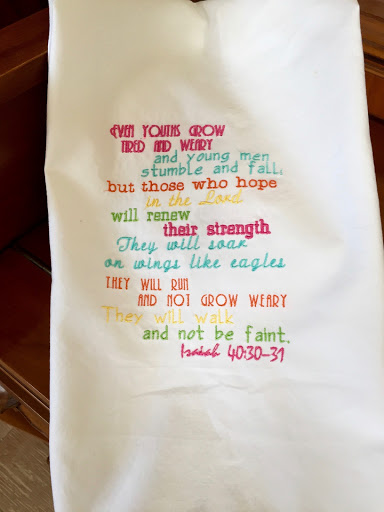 EVEN YOUTHS GROW
TIRED AND WEARY
and young men
stumble and fall;
but those who hope
in the Lord
will renew
their strength
They will soar
on wings like eagles
THEY WILL RUN
AND NOT GROW WEARY
They will walk
and not be faint.
Isaiah 40:30-31